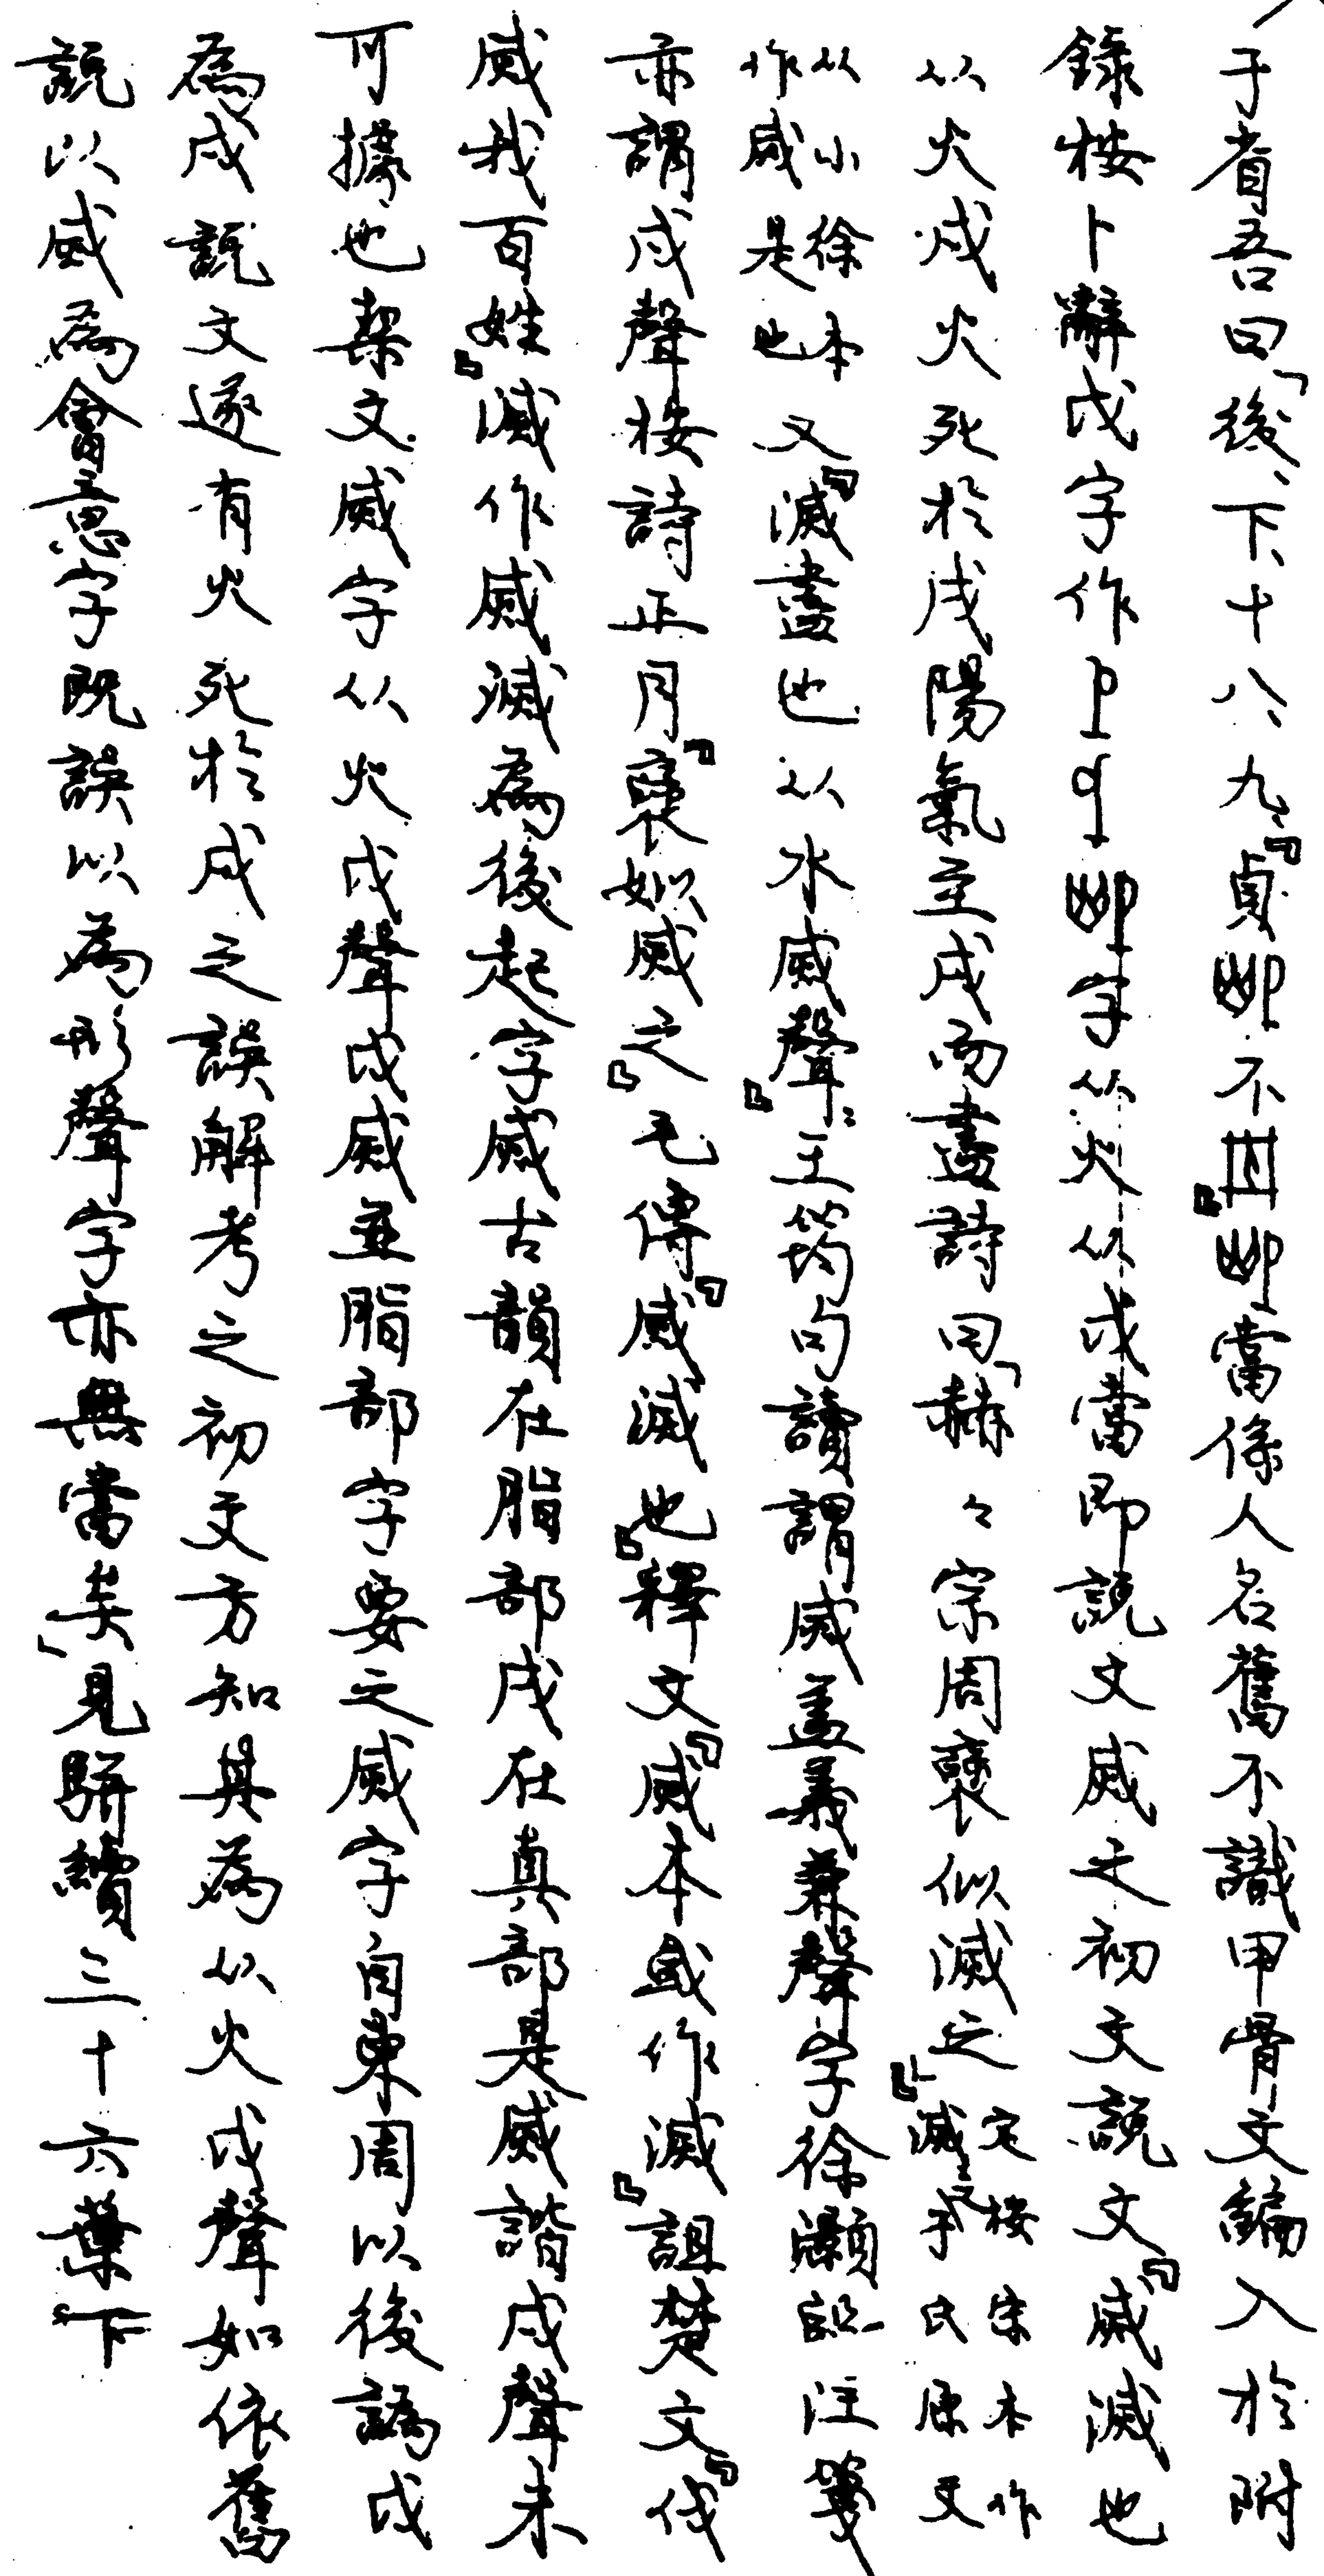 于省吾曰「後、下、十八、九、『貞不』當係人名舊不識甲骨文編入於附
錄按卜辭戊字作字从火从戊當即說文烕之初文說文『烕滅也
从火戌火死於戌陽氣至戌而盡詩曰「赫々宗周褒似滅之』定按宋本作滅之于氏原文
从小徐本作烕是也又『滅盡也从水烕聲』王筠句讀謂烕蓋義兼聲字徐灝說注箋
亦謂戌聲按詩正月『褒姒烕之』毛傳『烕滅也』釋文『烕本或作滅』詛楚文『伐
烕我百姓』滅作烕滅為後起字烕古韻在脂部戌在真部是烕諧戌聲未
可據也栔文烕字从火戊聲戊烕並脂部字要之烕字自東周以後譌戊
為戌說文遂有火死於戌之誤解考之初文方知其為从火戊聲如依舊
說以烕為會意字既誤以為形聲字亦無當矣」見駢續三十六葉下